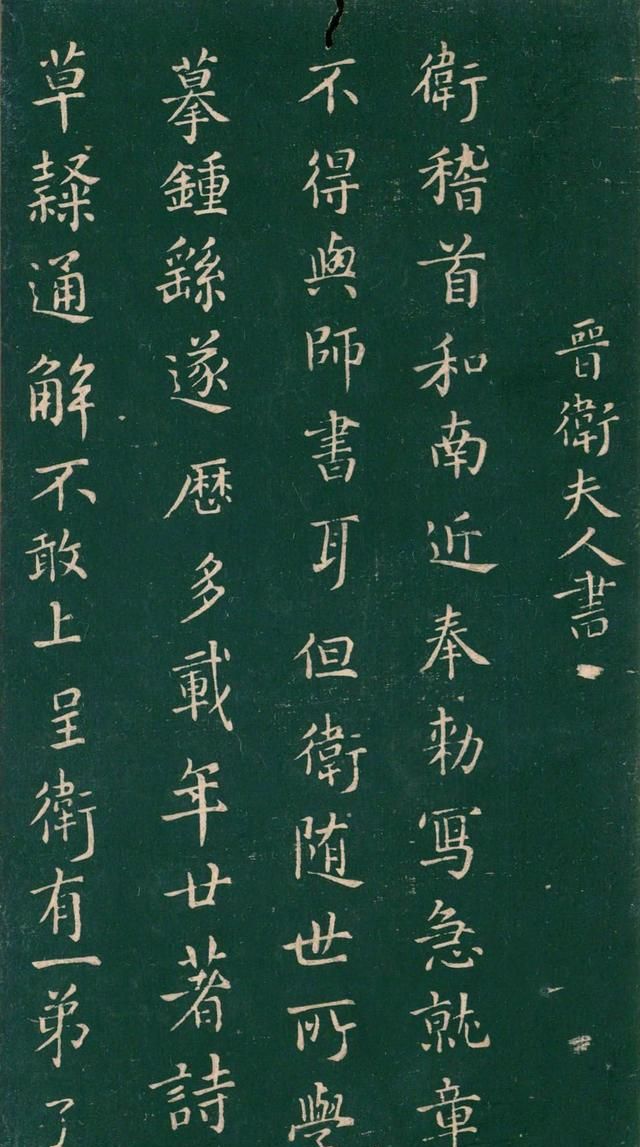 晉衛夫人書
衛稽首和南近奉勅寫急就章
不得與師書耳但衛随世所學
摹鍾繇遂歷多載年廿著詩
草隸通解不敢上呈衛有一弟子